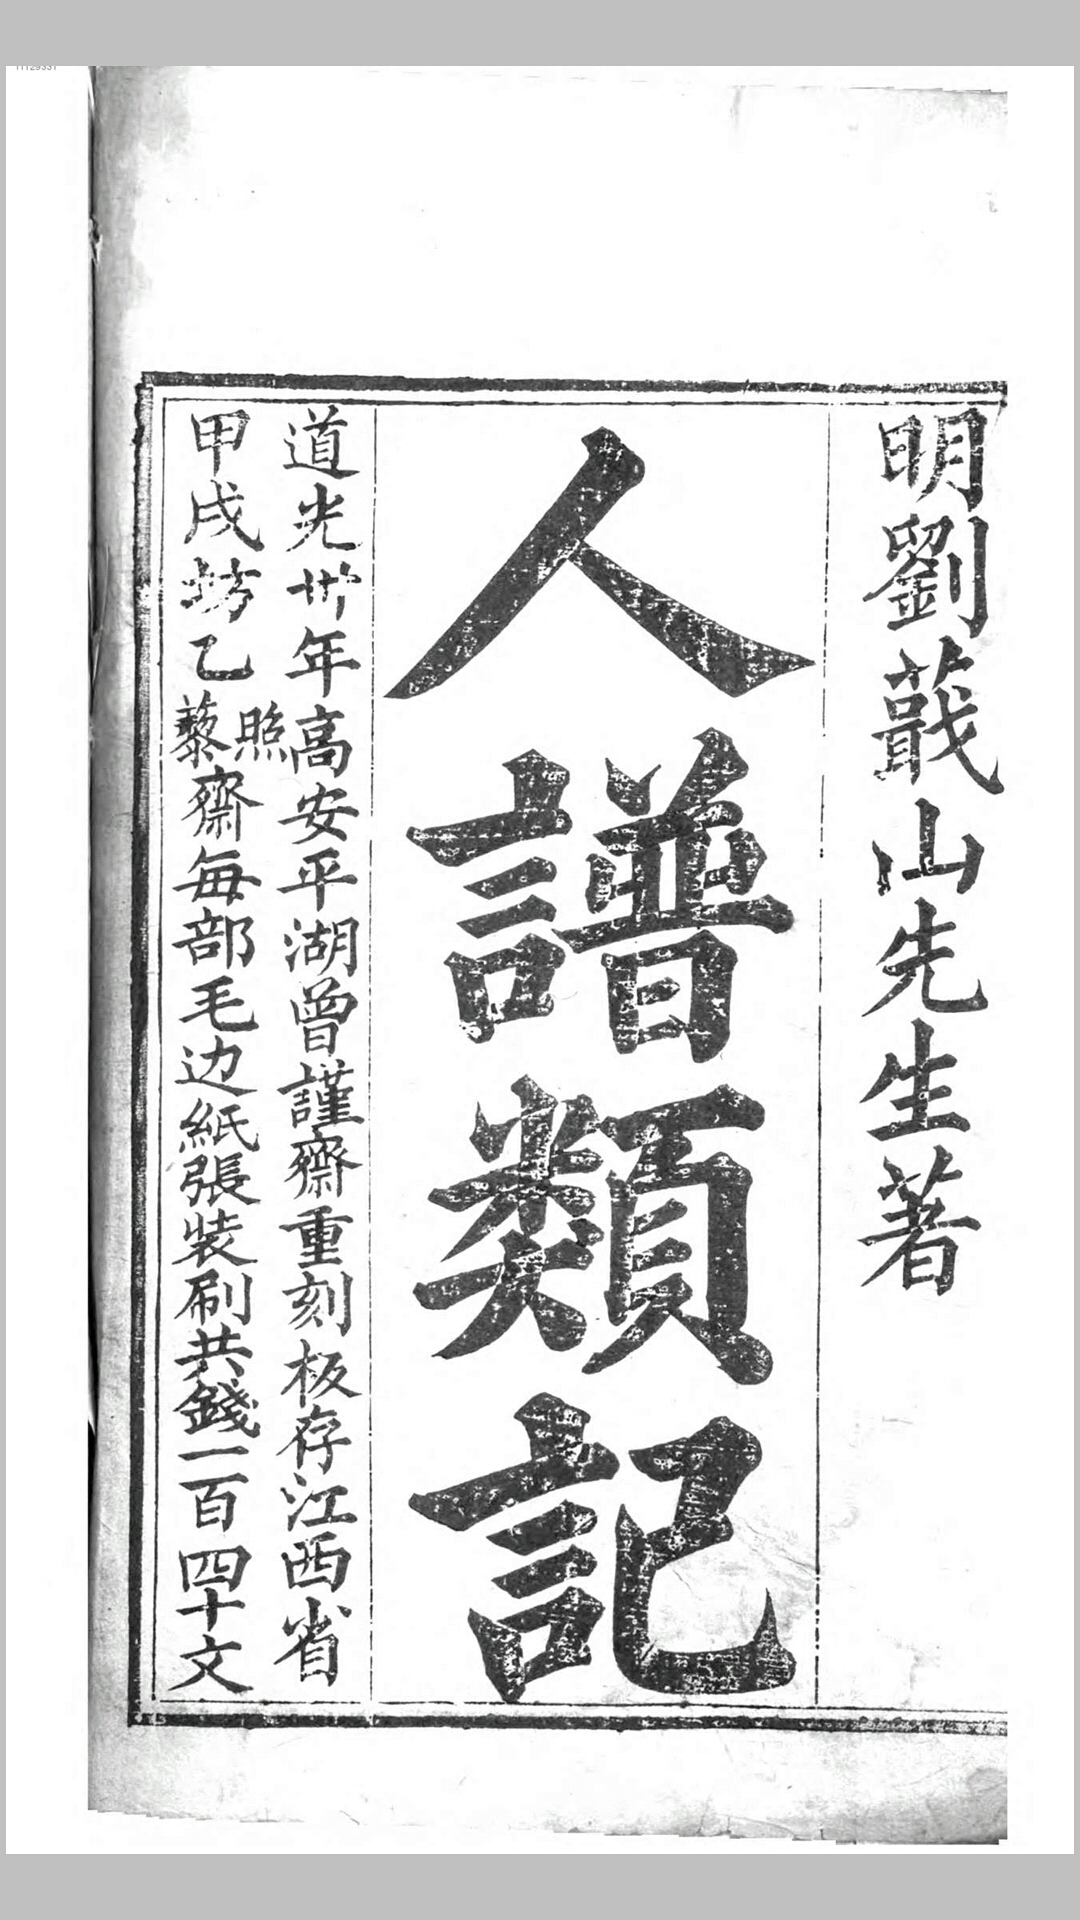 明劉蕺山先生著
人譜類記
道光卅年高安平湖曾謹齋重刻板存江西省
甲戌坊乙照藜齋每部毛边紙張裝刷共錢一百四十文